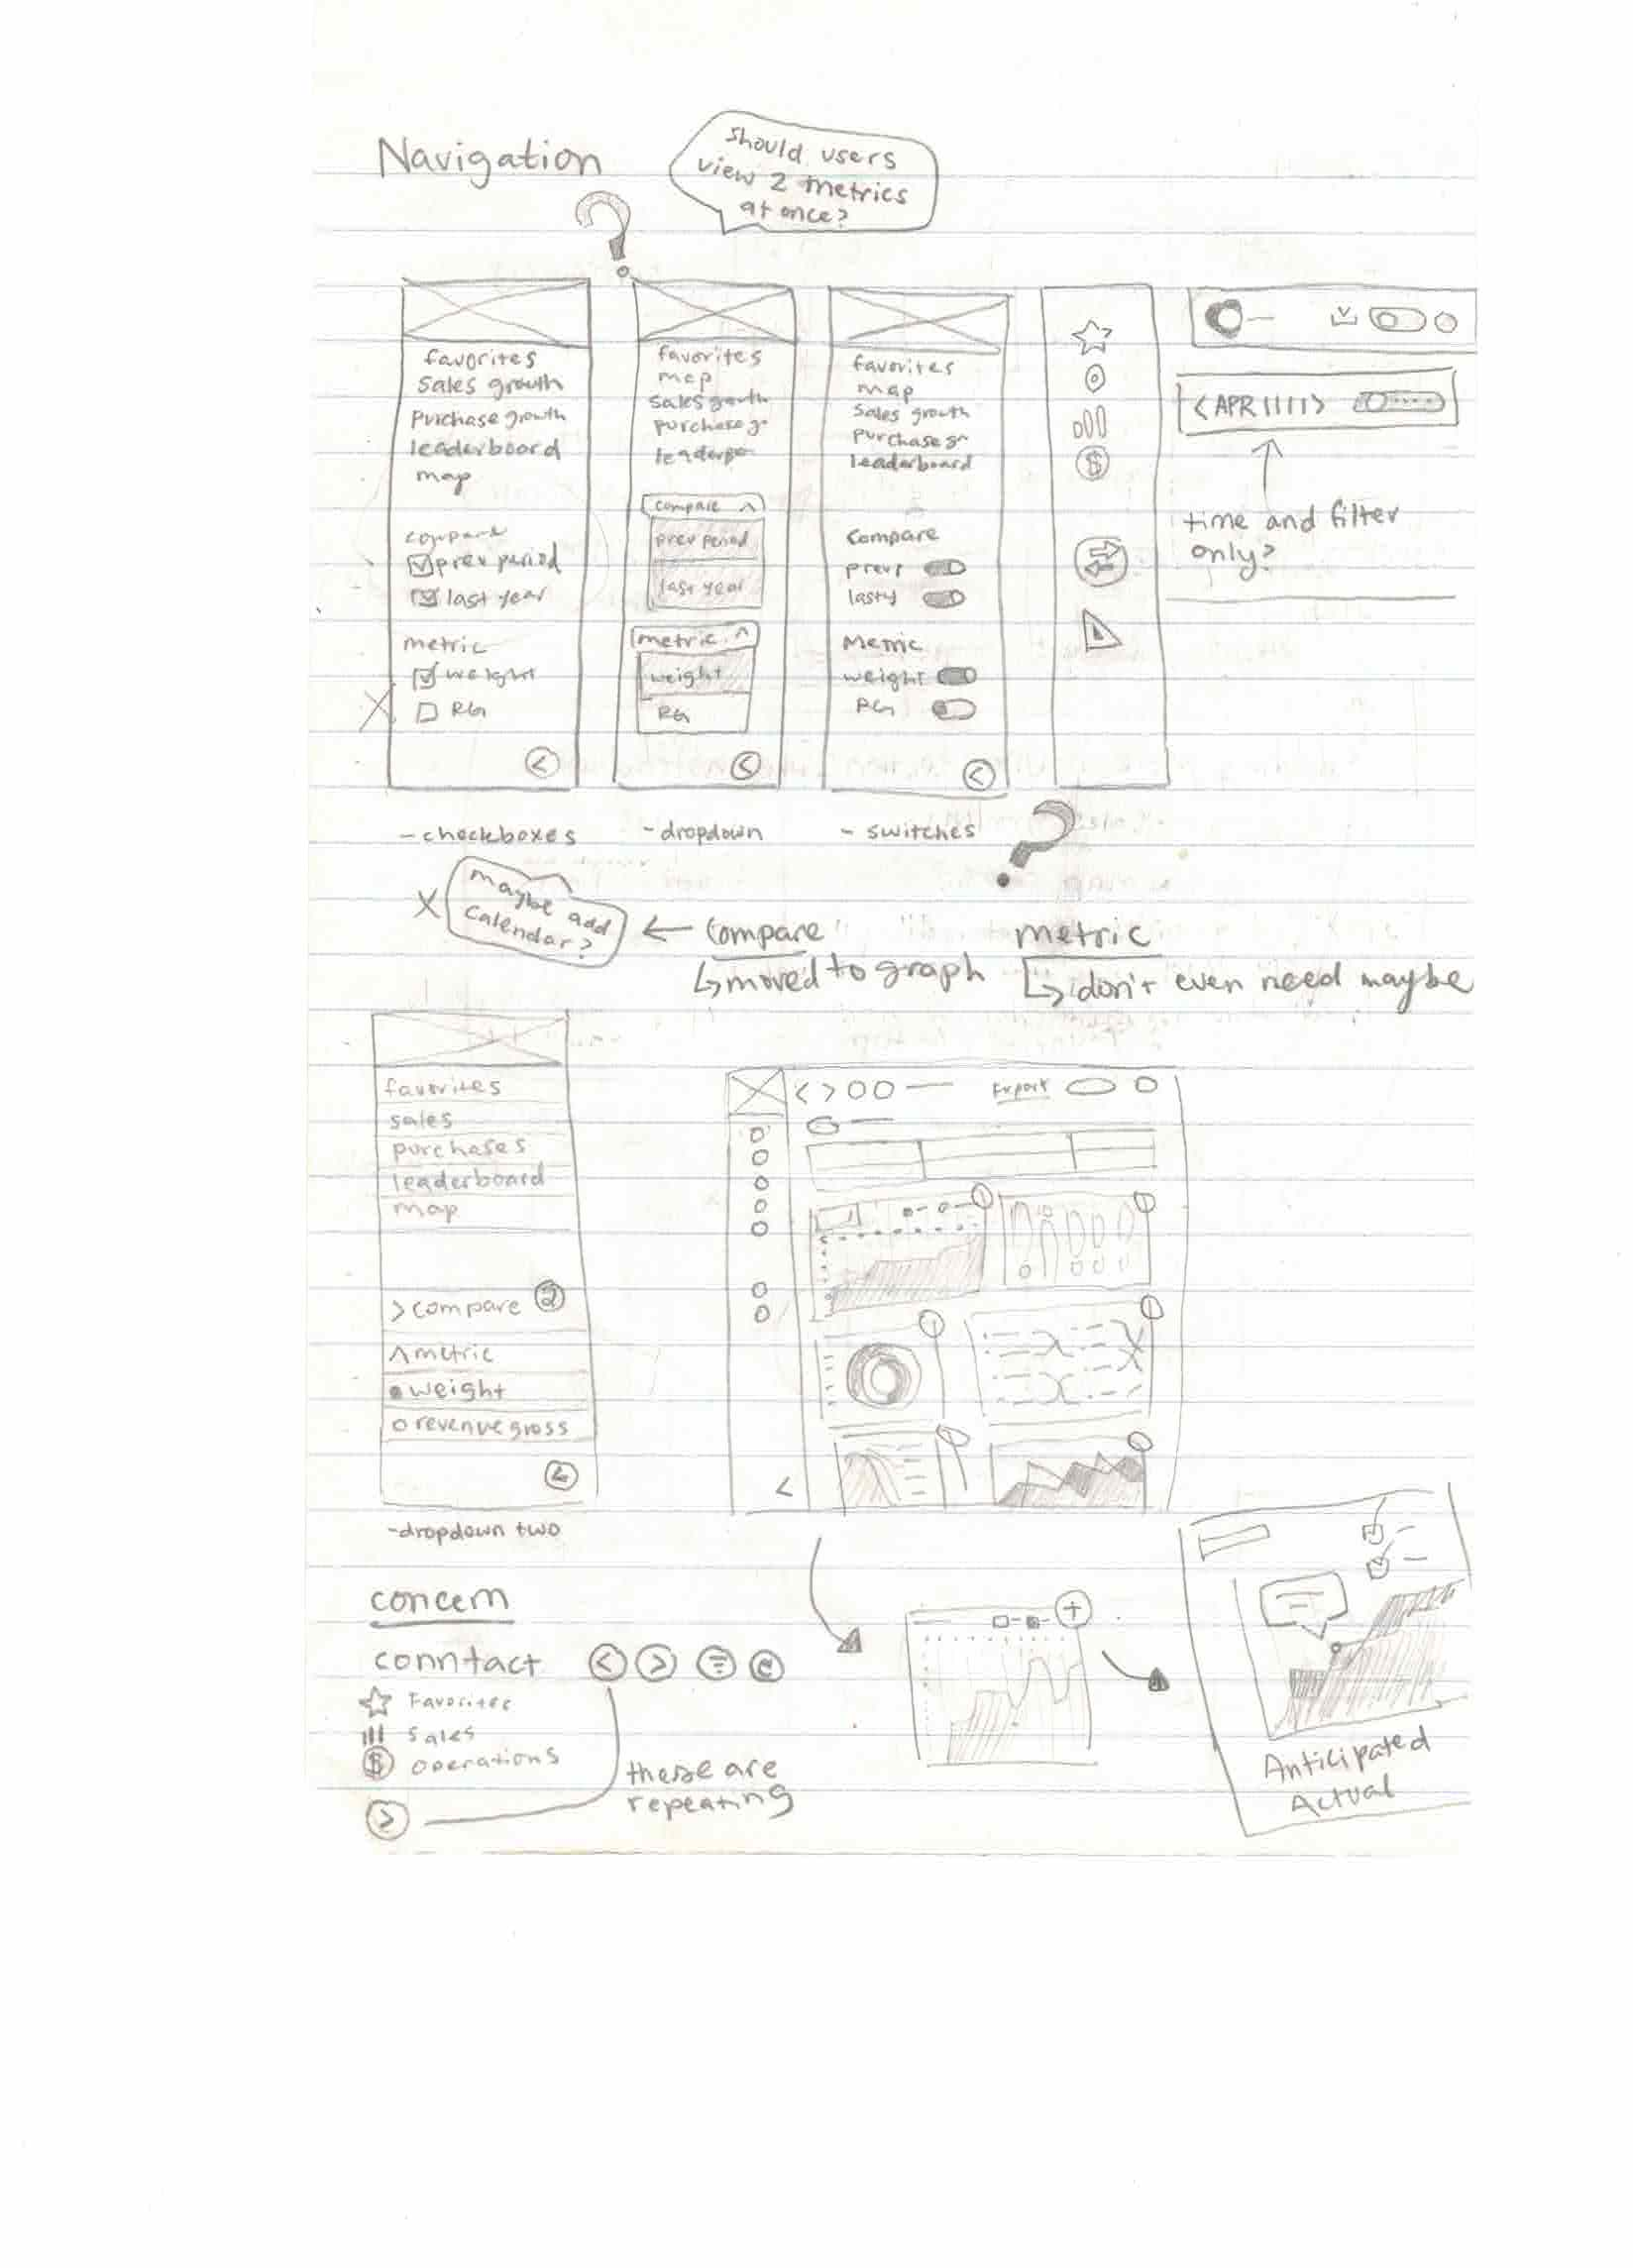 Navigation
should users
view 2 metrics
at once?
favorites
sales growth
purchase growth
leaderboard
map
compare
prev period
last year
metric
weight
RG
- checkboxes
favorites
map
sales growth
purchase g
compare ^
prev period
last year
metric ^
weight
RG
- dropdown
favorites
map
sales growth
purchase gr
leaderboard
Compare
prevp
lasty
Metric
weight
RG
- switches
<APR
>
time and filter
only?
X
maybe add
calendar?
← compare
↳ moved to graph
metric
↳ don't even need maybe
favorites
sales
purchases
leaderboard
map
> compare 2
^ metric
weight
revenue gross
- dropdown two
< >
Export
<
concern
conntact < >
Favorites
Sales
$ operations
>
these are
repeating
+
Anticipated
Actual